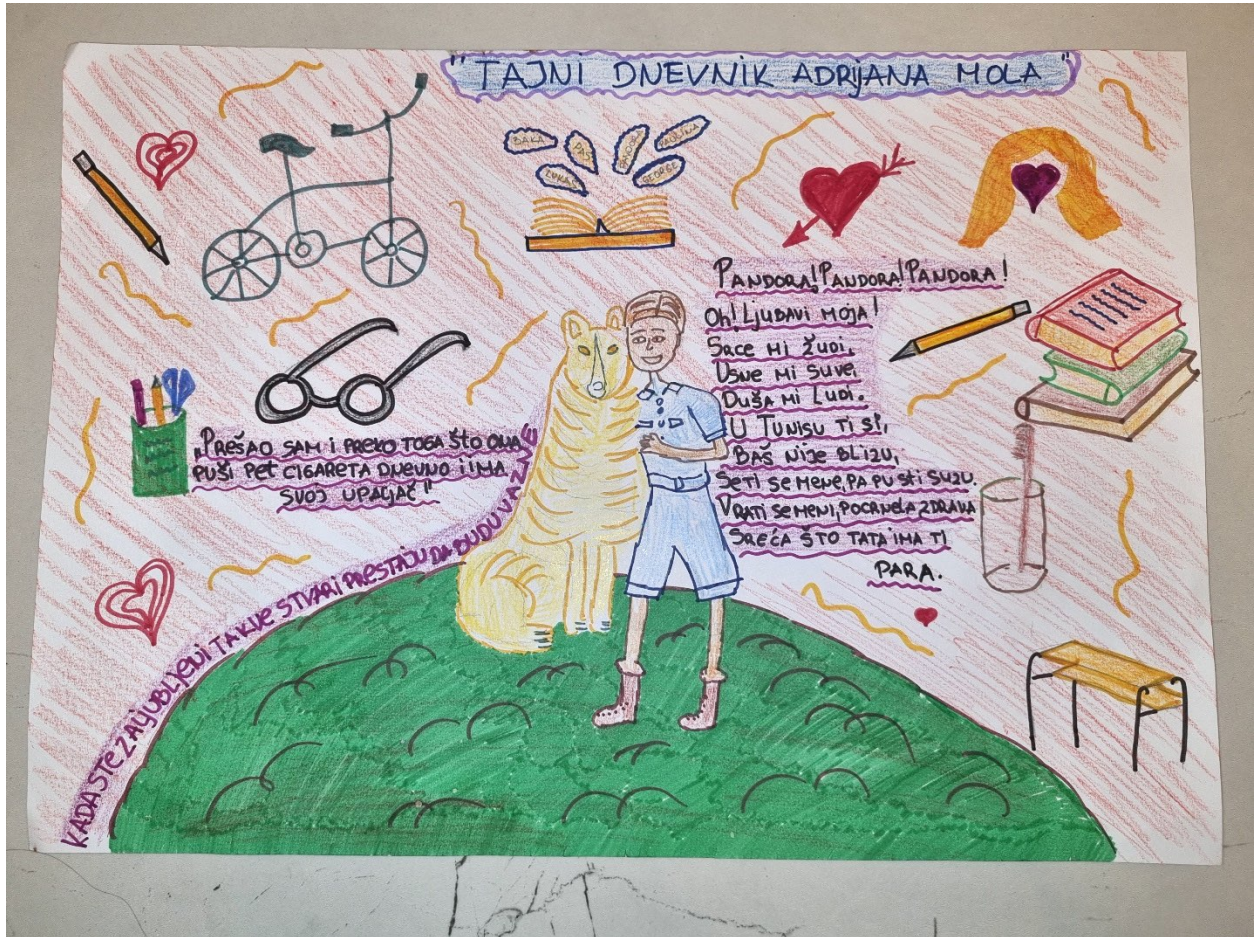 "TAJNI DNEVNIK ADRIJANA MOLA"
BAKA
PAULINA
LUKAS
GEORGE
PANDORA! PANDORA! PANDORA!
Oh! LJUBAVI MOJA!
SRCE MI ŽUDI,
USNE MI SUVE,
DUŠA MI LUDI.
U TUNISU TI SI,
BAŠ NIJE BLIZU,
SETI SE MENE, PA PUSTI SUZU.
VRATI SE MENI, POCRNELA ZDRAVA
SREĆA ŠTO TATA IMA TI
PARA.
„PREŠAO SAM I PREKO TOGA ŠTO ONA
PUŠI PET CIGARETA DNEVNO I IMA
SVOJ UPALJAČ"
KADA STE ZALJUBLJENI TAKVE STVARI PRESTAJU DA BUDU VAŽNE